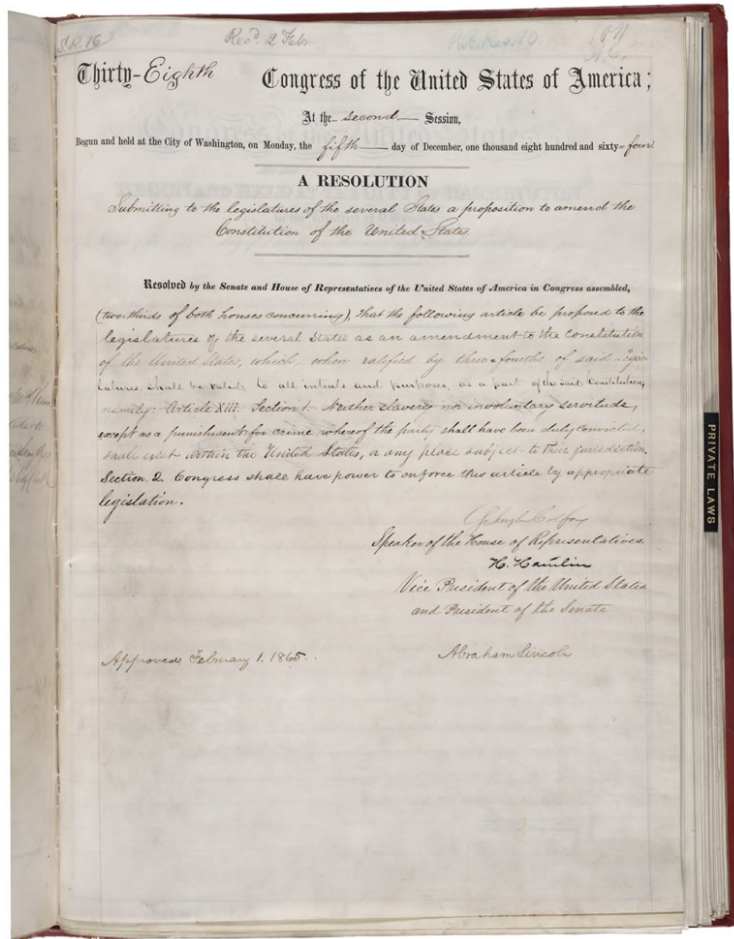 S.R. 16
Rec'd. 2 Feby
Pub. Res. 10.
Thirty-Eighth Congress of the United States of America;
At the second Session,
Begun and held at the City of Washington, on Monday, the fifth day of December, one thousand eight hundred and sixty-four
A RESOLUTION
Submitting to the legislatures of the several States a proposition to amend the
Constitution of the United States.
Resolved by the Senate and House of Representatives of the United States of America in Congress assembled,
(two-thirds of both houses concurring), That the following article be proposed to the
legislatures of the several States as an amendment to the Constitution
of the United States, which, when ratified by three-fourths of said legis-
latures shall be valid, to all intents and purposes, as a part of the said Constitution,
namely: Article XIII. Section 1. Neither slavery nor involuntary servitude,
except as a punishment for crime whereof the party shall have been duly convicted,
shall exist within the United States, or any place subject to their jurisdiction.
Section 2. Congress shall have power to enforce this article by appropriate
legislation.
Schuyler Colfax
Speaker of the House of Representatives
H. Hamlin
Vice President of the United States
and President of the Senate
Approved, February 1. 1865.
Abraham Lincoln
PRIVATE LAWS